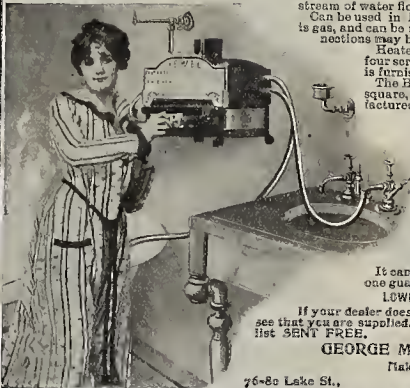 stream of water flo
Can be used in
is gas, and can be
nections may b
Heate
four scr
is furnis
The H
square,
factured
JEWEL
It can
one gua
LOWE
If your dealer does
see that you are supplied.
list SENT FREE.
GEORGE M
Mak
76-80 Lake St.,